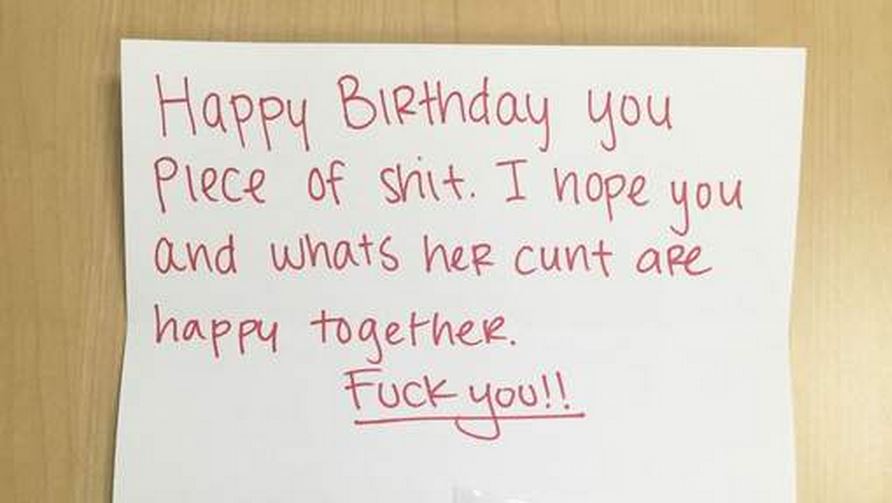 Happy BIRthday you
Piece of shit. I hope you
and whats heR cunt aRe
happy togetheR.
Fuck you!!